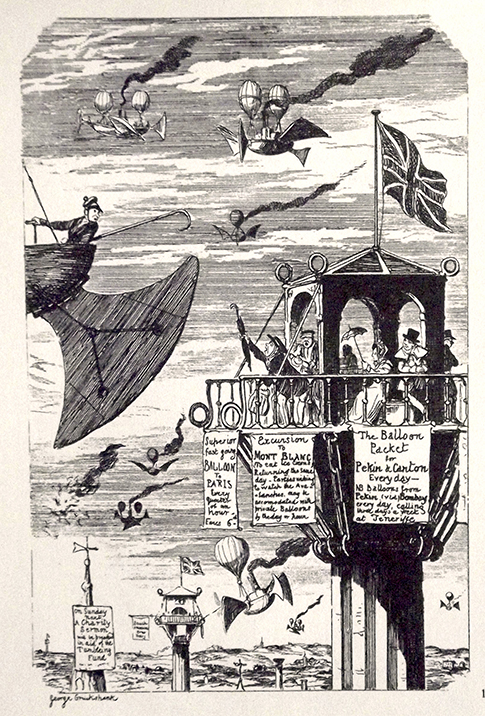 Superior
fast going
BALLOON
To
PARIS
Every
Quarter
of an
hour
Fares 6
Excursion
To
MONT BLANC
To eat Ice Cream
Returning the same
day - Parties wishing
to witch the
- lanches may be
accomodated with
private Balloons
by the day or hour
The Balloon
Packet
for
Pekin & Canton
Every day -
NB Balloons from
Pekin (via) Bombay
every day, calling
three days a week
at Teneriffe
On Sunday
Next
a Charity
Sermon
will be preached
in aid of the
Tunbling
Fund
George Cruikshank
1